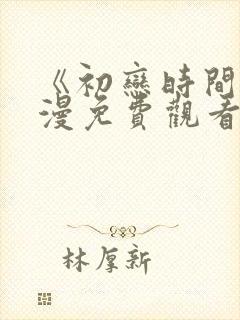 《初戀時間
漫免費觀看
林厚新